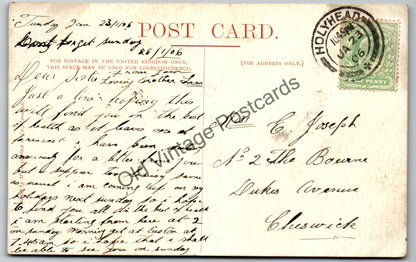 Tuesday Jan 23/1/06
Dont forget sunday
28/1/06
POST CARD.
FOR POSTAGE IN THE UNITED KINGDOM ONLY,
THIS SPACE MAY BE USED FOR CORRESPONDENCE.
(FOR ADDRESS ONLY.)
HOLYHEAD
JA 23
06
HALFPENNY
Dear Sister from your
Loving Brother
Just a line hoping this
will find you in the best
of health as it leaves me at
present i have been
for a letter from you
but i suppose you
as usual i am coming up on my
holidays next sunday so i hope
to find you all in the best of health
i am starting from here at 2
on sunday morning get at Euston at
7.45am so i hope that i shall
be able to see you on sunday
C. Joseph
No 2 The Bourne
Dukes Avenue
Cheswick
Old Vintage Postcards